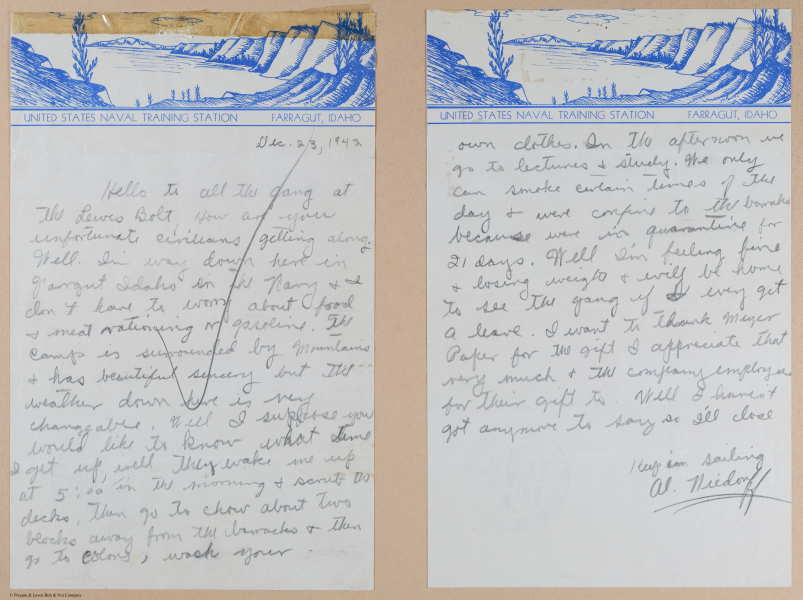 UNITED STATES NAVAL TRAINING STATION FARRAGUT, IDAHO
Dec. 23, 1942
Hello to all the gang at
The Lewis Bolt, How are you
unfortunate civilians getting along.
Well. I'm way down here in
Farrgut Idaho in the Navy & I
don't have to worry about food
& meat rationing or gasoline. The
camp is surrounded by Mountains
& has beautiful scenery but the
weather down here is very
changeable. Well I suppose you
would like to know what time
I get up, well they wake me up
at 5:00 in the morning & scrub the
decks, then go to chow about two
blocks away from the barracks & then
go to colors, wash your
UNITED STATES NAVAL TRAINING STATION FARRAGUT, IDAHO
own clothes. In the afternoon we
go to lectures & study. We only
can smoke certain times of the
day & were confine to the barracks
because were in quarantine for
21 days. Well I'm feeling fine
& losing weight & will be home
to see the gang if I every get
a leave. I want to thank Meyer
Paper for the gift I appreciate that
very much & the company employees
for their gift to. Well I haven't
got anymore to say so I'll close
Keep em sailing
Al. Niedorff
© Pheum & Lewis Bolt & Nut Company